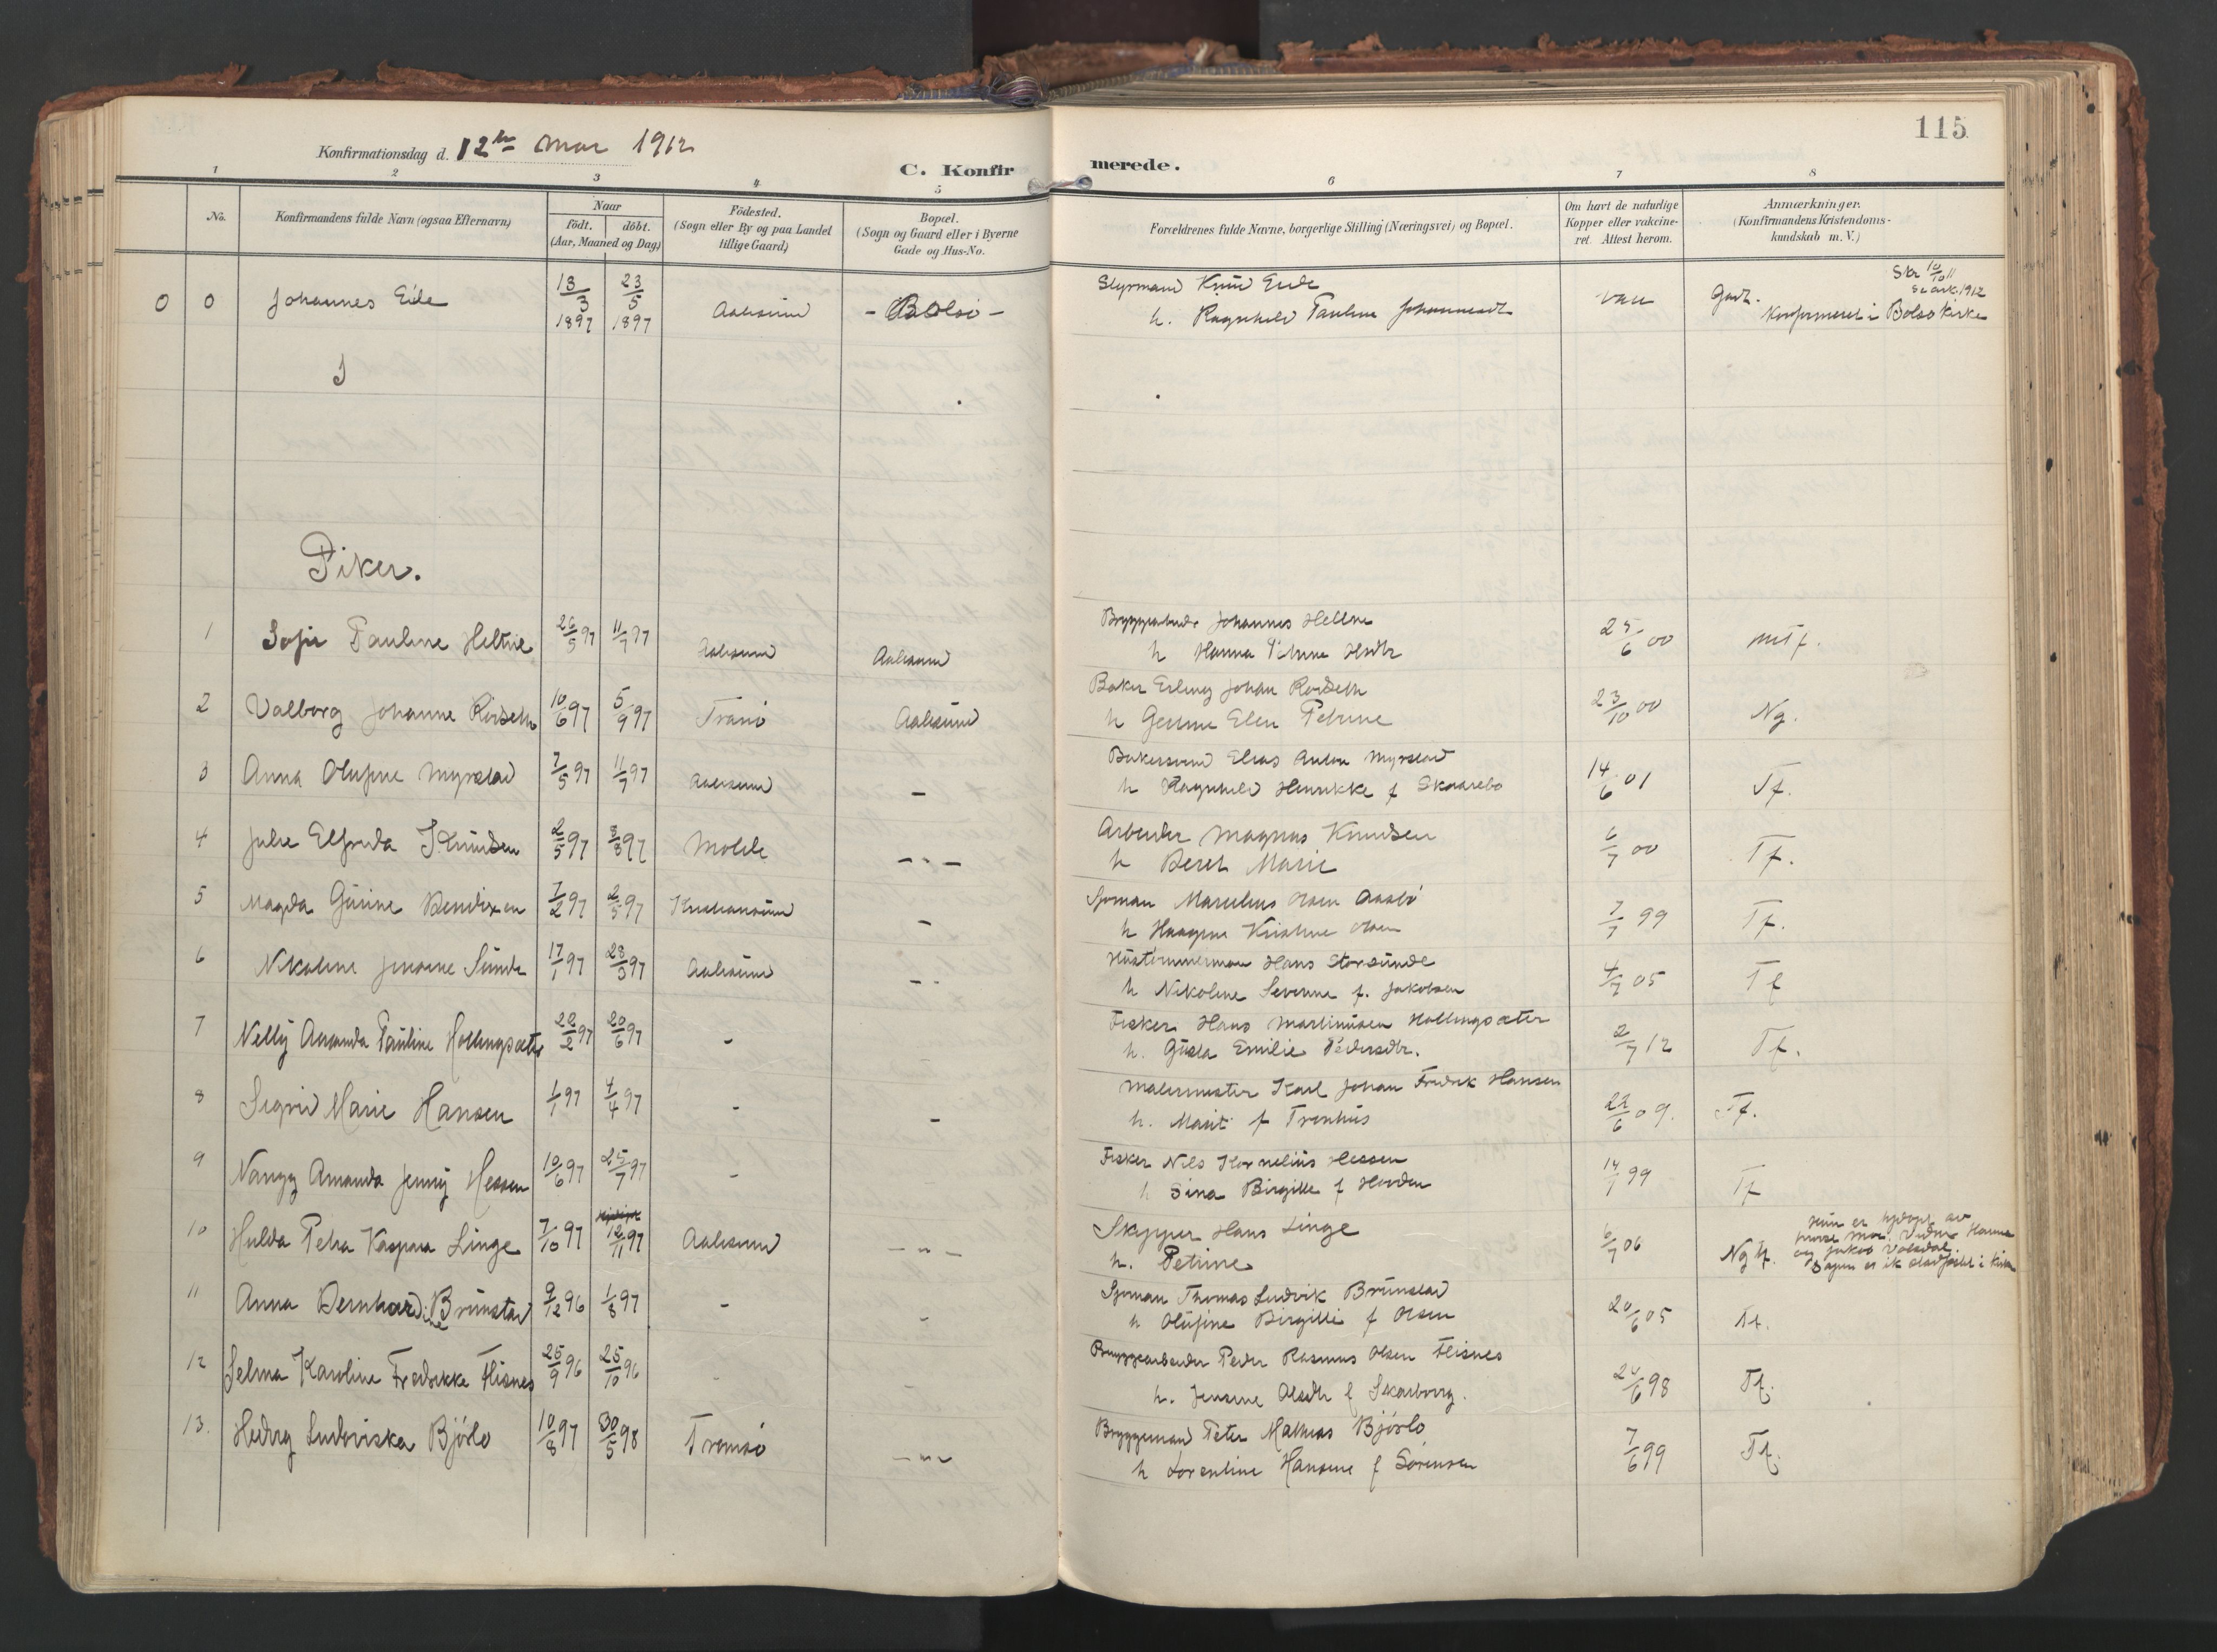 115
Konfirmationsdag d. 12te mai 1912
C. Konfirmerede.
1 2 3 4 5 6 7 8
No.
Konfirmandens fulde Navn (ogsaa Efternavn)
Naar
födt. döbt.
(Aar, Maaned og Dag)
Födested.
(Sogn eller By og paa Landet
tillige Gaard)
Bopæl.
(Sogn og Gaard eller i Byerne
Gade og Hus-No.
Forældrenes fulde Navne, borgerlige Stilling (Næringsvei) og Bopæl.
Om havt de naturlige
Kopper eller vakcine-
ret. Attest herom.
Anmærkninger.
(Konfirmandens Kristendoms-
kundskab m. V.)
0 0 Johannes Eide 13/3 1897 23/5 1897 Aalesund - Bolsö - Styrmand Knud Eide
h. Ragnhild Pauline Johannesdt
Konfirmeret i Bolsö Kirke
Piker.
1 Sofie Pauline Heltne 26/5 97 11/7 97 Aalesund Aalesund Johannes Heltne
h Hanna 25/6 00 mtf.
2 Valborg Johanne Rörseth 10/6 97 5/9 97 Tranö Aalesund Baker Erling Johan
h Elen Petrine 23/10 00 Ng.
3 Anna Olufine Myrstad 7/5 97 11/7 97 Aalesund - Elias Anton Myrstad
h Ragnhild Henrikke f Skaarebo 14/6 01 Tf.
4 Julie Elfrida Knudsen 2/5 97 8/8 97 Molde - " - Arbeider Magnus Knudsen
h Beret Marie 6/7 00 Tf.
5 Magda Gurine Bendixen 7/2 97 2/5 97 Kristiansund - Sjöman Marelius Olsen
h Kristine Olsen 7/7 99 Tf.
6 Nikoline Jensine Sunde 17/1 97 28/3 97 Aalesund - Hustömmerman Hans Storsunde
h Nikoline Severine f. Jakobsen 4/7 05 Tf
7 Nelly Amanda Pauline Hollingsæter 22/2 97 20/6 97 - Fisker Hans Martinusen Hollingsæter
h. Gusta Emilie Pedersdtr. 2/7 12 Tf.
8 Sigrid Marie Hansen 1/1 97 4/4 97 - - Malermester Karl Johan Fredrik Hansen
h. Marit f Tronhus 22/6 09. Tf.
9 Nanyy Amanda Jenny Hessen 10/6 97 25/7 97 - Fisker Nils Kornelius Hessen
h Sina Birgitte f Hovden 14/7 99 Tf
10 Hulda Petra Kaspara Linge 7/10 97 12/11 97 Aalesund - " - Skipper Hans Linge
h. Petrine 6/7 06 Ng tf. hun er av
Hanna
og Jakob
i kirken
11 Anna Bernhardine Brunstad 9/12 96 1/8 97 - - Sjöman Thomas Ludvik Brunstad
h Olufine Birgitte f Olsen 20/6 05 Tf.
12 Selma Karoline Fredrikke Flisnes 25/9 96 25/10 96 - - Bryggearbeider Peder Rasmus Olsen Flisnes
h. Jensine Olsdtr f Skarborg. 98 Tf.
13. Hedvig Ludoviska Björlo 10/8 97 30/5 98 Tromsö - " - Bryggemand Peter Mathias Björlo
h Lorentine Hansine f Sörensen 7/6 99 Tf.